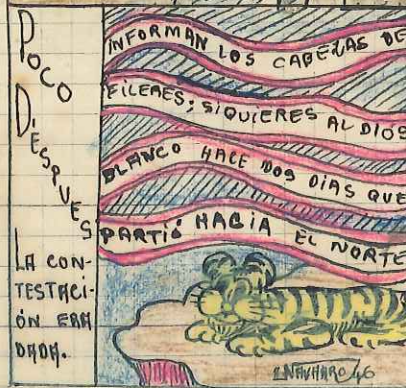 POCO
D'ESPUES
LA CON-
TESTACI-
ÓN ERA
DADA.
INFORMAN LOS CABEZAS DE
FILERES; SI QUIERES AL DIOS
BLANCO HACE DOS DIAS QUE
PARTIÓ HACIA EL NORTE
NAVARRO 46